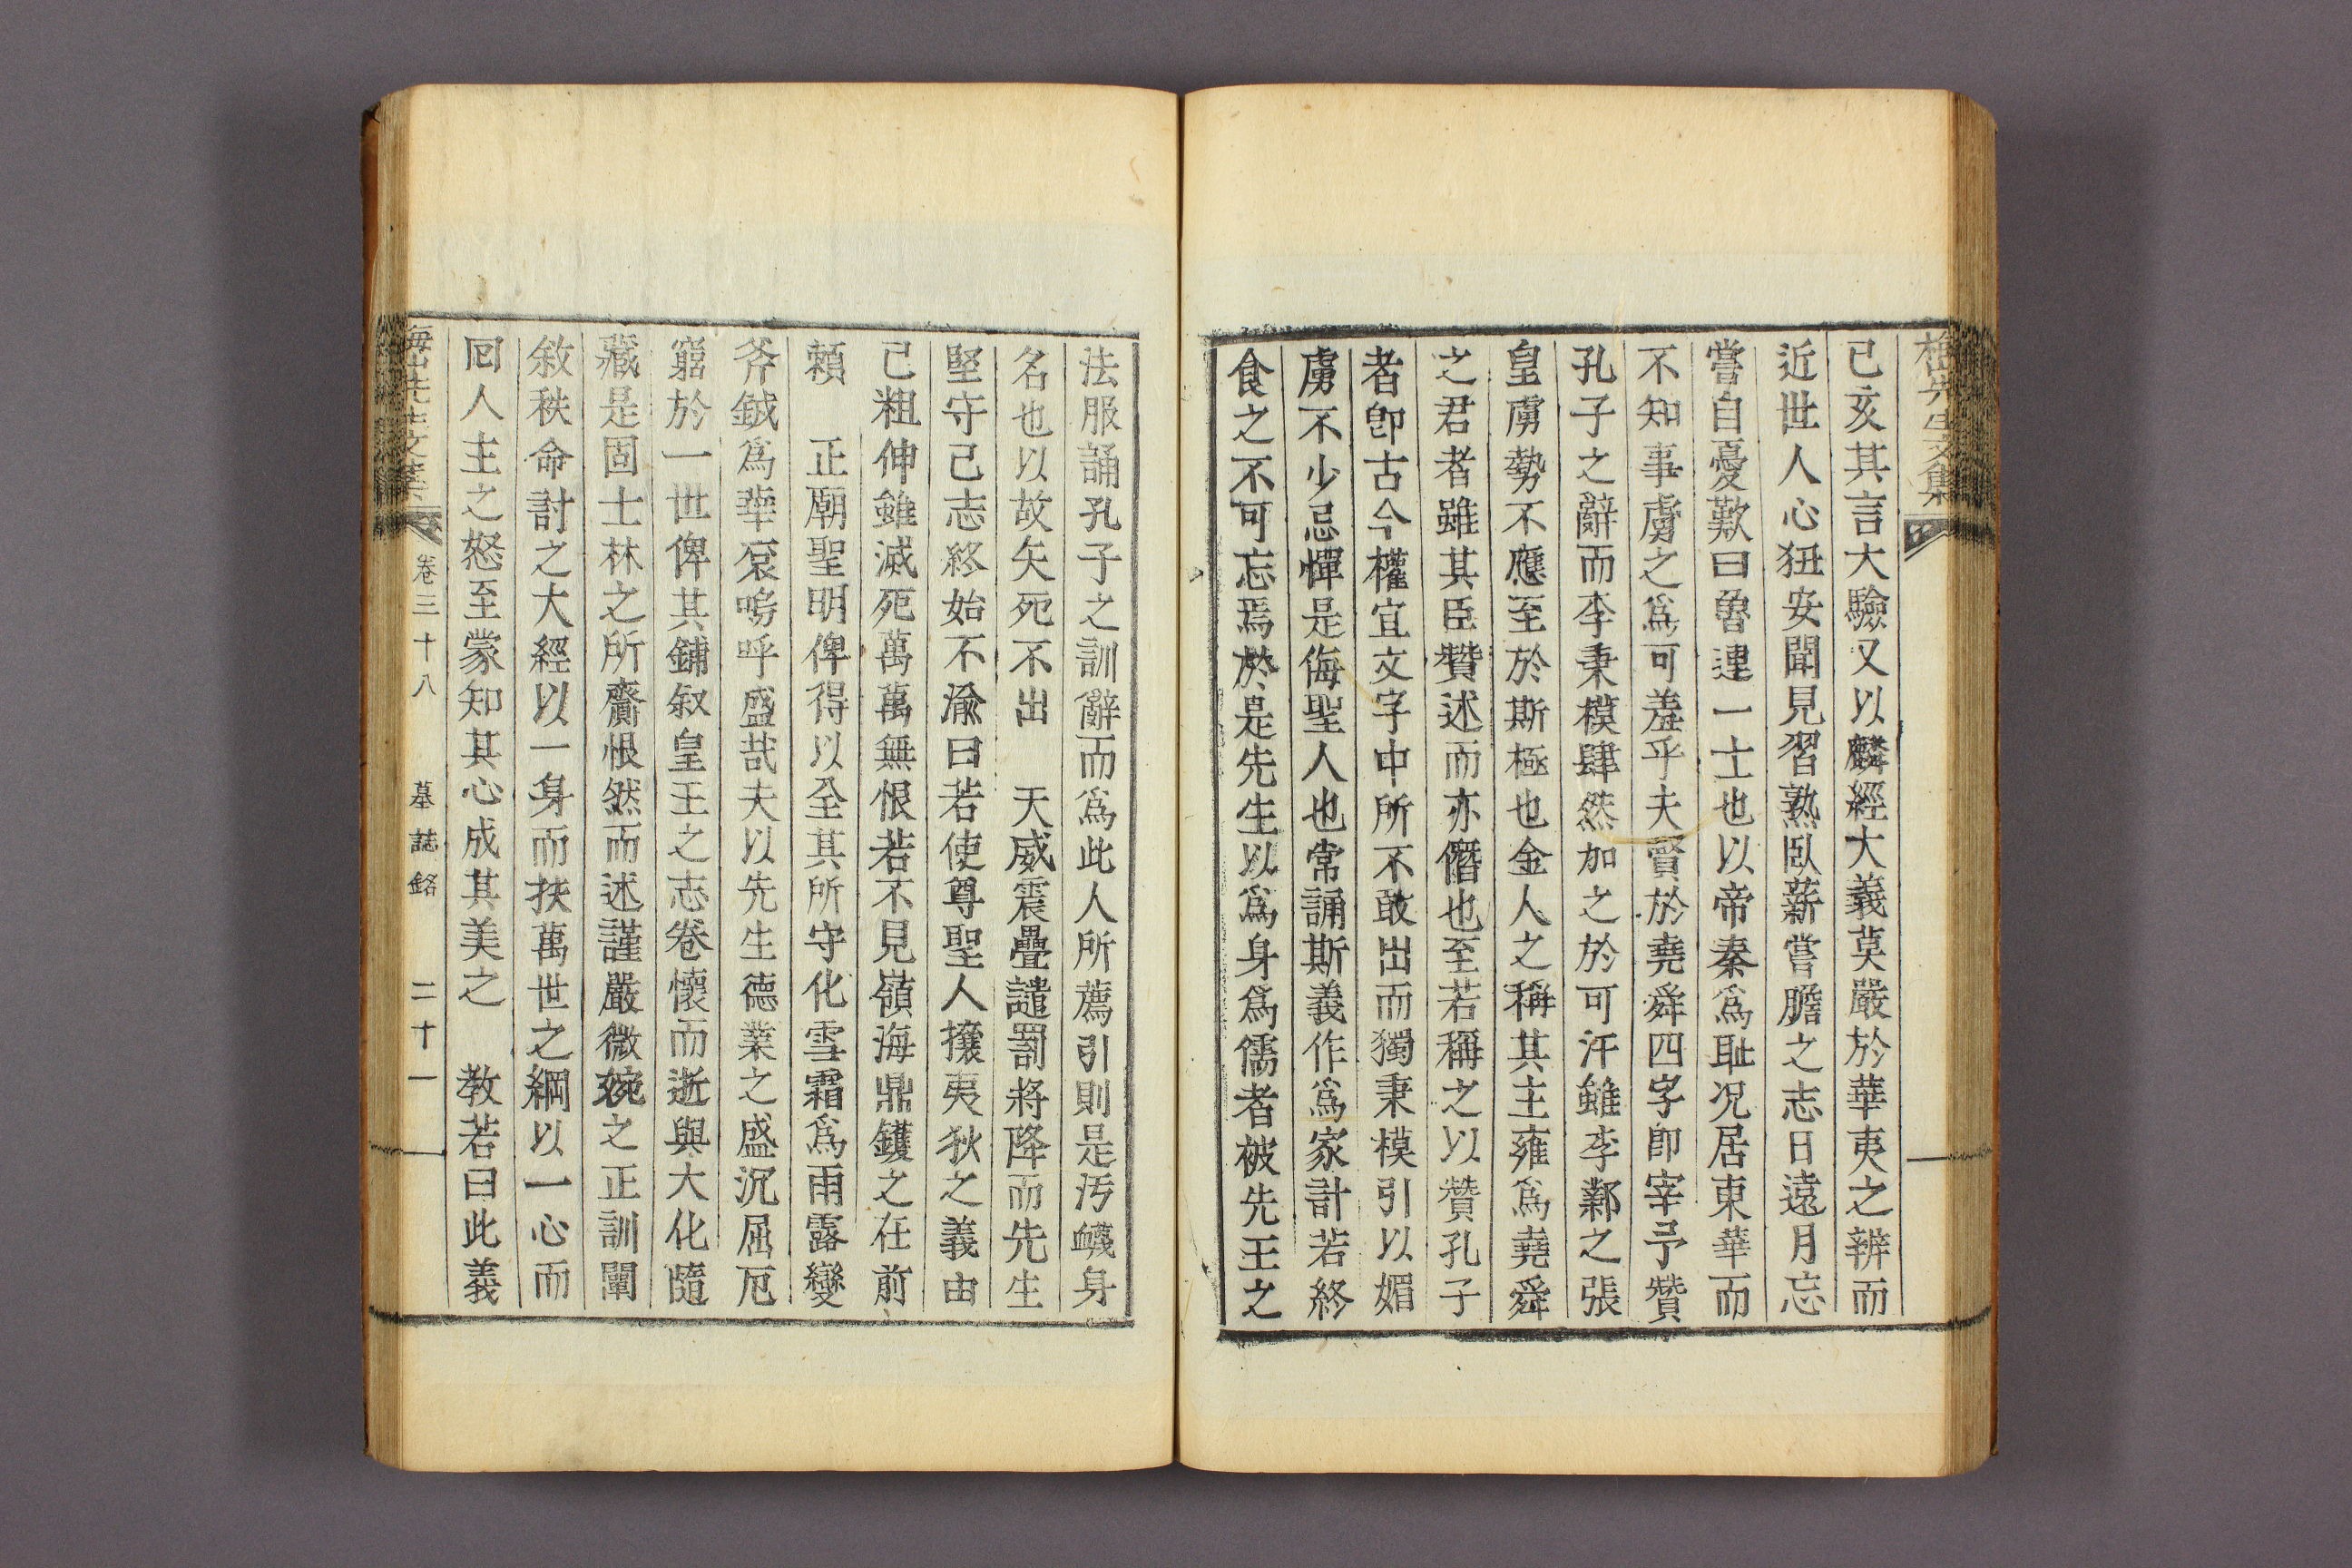 梅山先生文集
己亥其言大驗又以麟經大義莫嚴於華夷之辨而
近世人心狃安聞見習熟臥薪嘗膽之志日遠月忘
嘗自憂歎曰魯連一士也以帝秦爲耻况居東華而
不知事虜之爲可羞乎夫賢於堯舜四字卽宰予贊
孔子之辭而李秉模肆然加之於可汗雖李鄴之張
皇虜勢不應至於斯極也金人之稱其主雍爲堯舜
之君者雖其臣贊述而亦僭也至若稱之以贊孔子
者卽古今權宜文字中所不敢出而獨秉模引以媚
虜不少忌憚是侮聖人也常誦斯義作爲家計若終
食之不可忘焉於是先生以爲身爲儒者被先王之
法服誦孔子之訓辭而爲此人所薦引則是汚衊身
名也以故矢死不出 天威震疊譴罰將降而先生
堅守己志終始不渝曰若使尊聖人攘夷狄之義由
己粗伸雖滅死萬萬無恨若不見嶺海鼎鑊之在前
賴 正廟聖明俾得以全其所守化雪霜爲雨露變
斧鉞爲華袞嗚呼盛哉夫以先生德業之盛沉屈厄
窮於一世俾其鋪叙皇王之志卷懷而逝與大化隨
藏是固士林之所齎恨然而述謹嚴微婉之正訓闡
敘秩命討之大經以一身而扶萬世之綱以一心而
回人主之怒至蒙知其心成其美之 敎若曰此義
梅山先生文集 卷三十八 墓誌銘 二十一